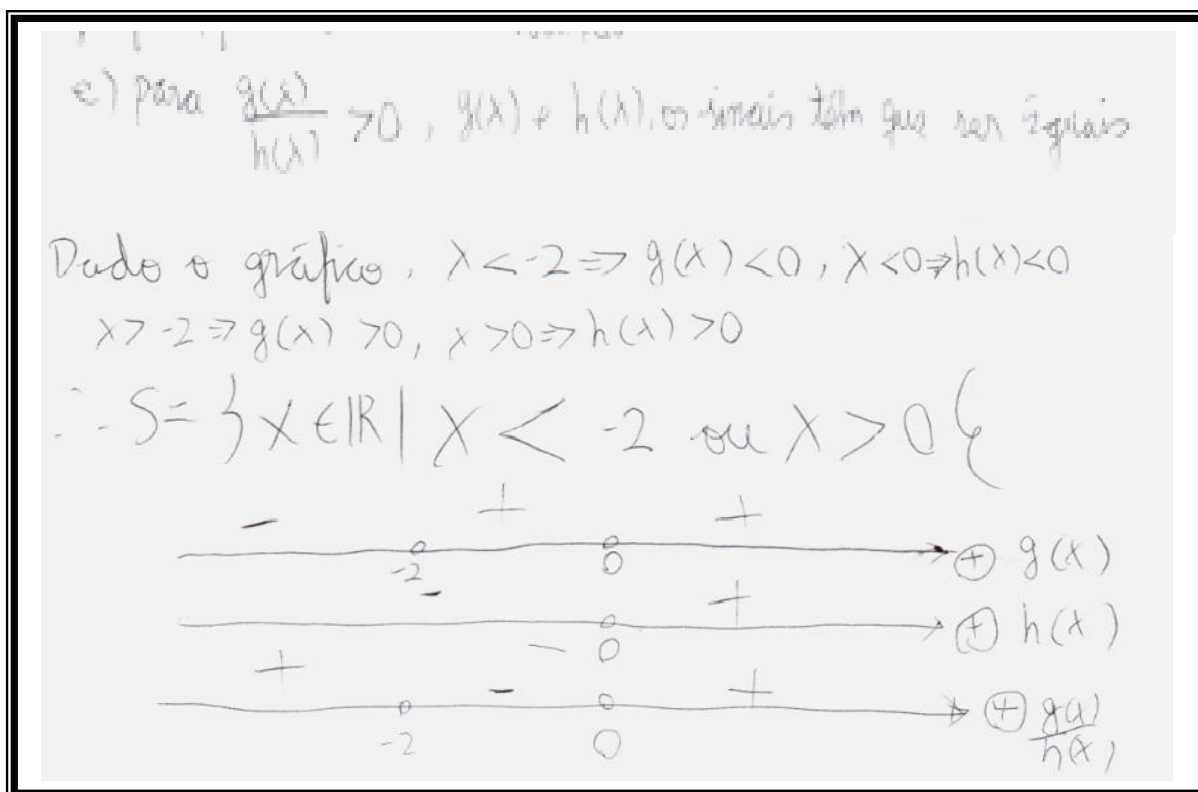 e) para g(x)/h(x) >0, g(x) e h(x), os sinais têm que ser iguais
Dado o gráfico, x<-2 => g(x)<0, x<0=>h(x)<0
x>-2 => g(x) >0, x>0=> h(x) >0
∴ S= }x∈ℝ| x < -2 ou x>0{
- + +
-2 0 ⊕ g(x)
- +
0 ⊕ h(x)
+ - - +
-2 0 ⊕ g(x)/h(x)